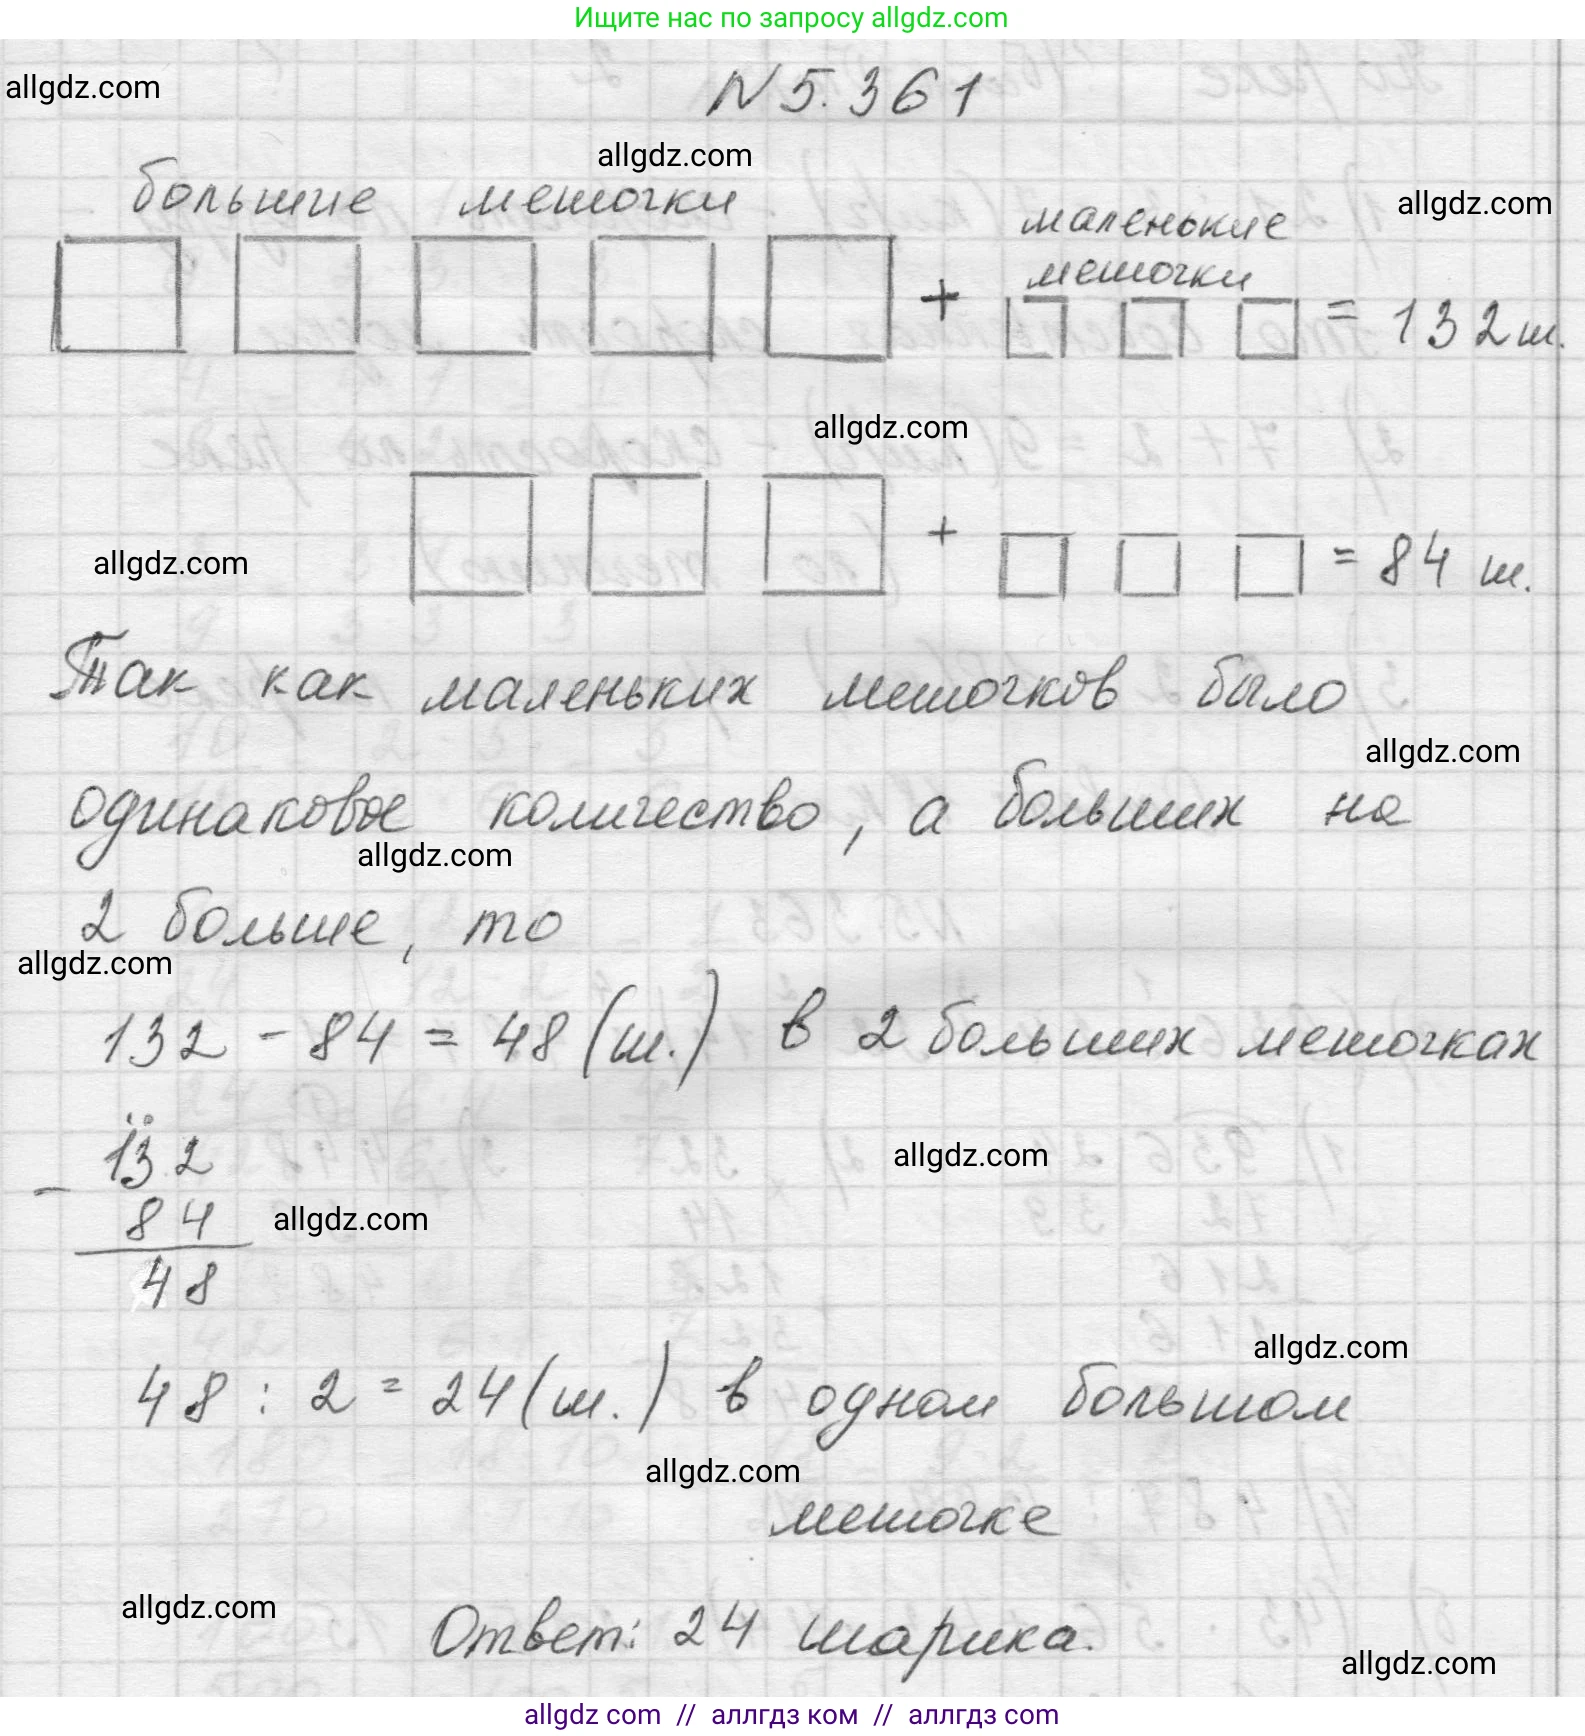 Ищите нас по запросу allgdz.com
allgdz.com
N 5.361
allgdz.com
большие мешочки
allgdz.com
маленькие
мешочки
+ = 132 ш.
allgdz.com
+ = 84 ш.
allgdz.com
Так как маленьких мешочков было
allgdz.com
одинаковое количество, а больших на
allgdz.com
2 больше, то
allgdz.com
132 - 84 = 48 (ш.) в 2 больших мешочках
132
allgdz.com
- 84
allgdz.com
48
allgdz.com
48 : 2 = 24 (ш.) в одном большом
allgdz.com
мешочке
allgdz.com
Ответ: 24 шарика.
allgdz.com
allgdz com // аллгдз ком // аллгдз com